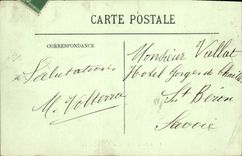 CARTE POSTALE
CORRESPONDANCE
Salutations
M. Volterra
Monsieur Vallat
Hotel Gorges de
St Béron
Savoie